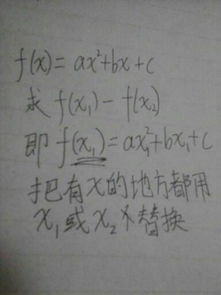 f(x) = ax²+bx+c
求 f(x₁) - f(x₂)
即 f(x₁) = ax₁²+bx₁+c
把有x的地方都用
x₁或x₂来替换